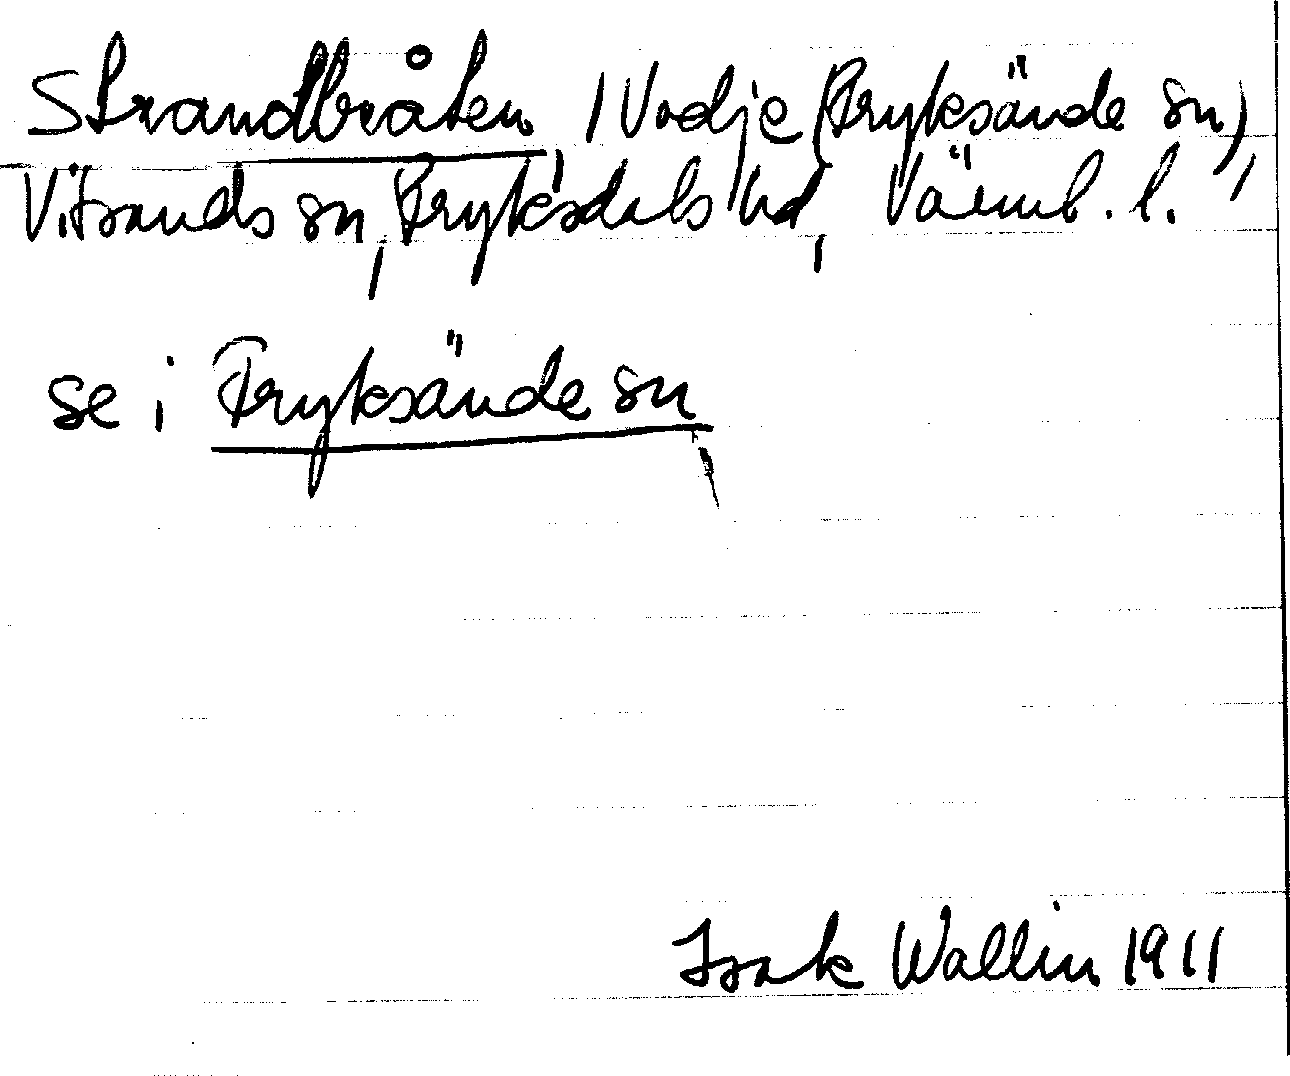 Strandbråten / Vadje (Fryksände sn),
Vitsands sn, Fryksdals hd, Värml. l.
se i Fryksände sn
Isak Wallin 1911